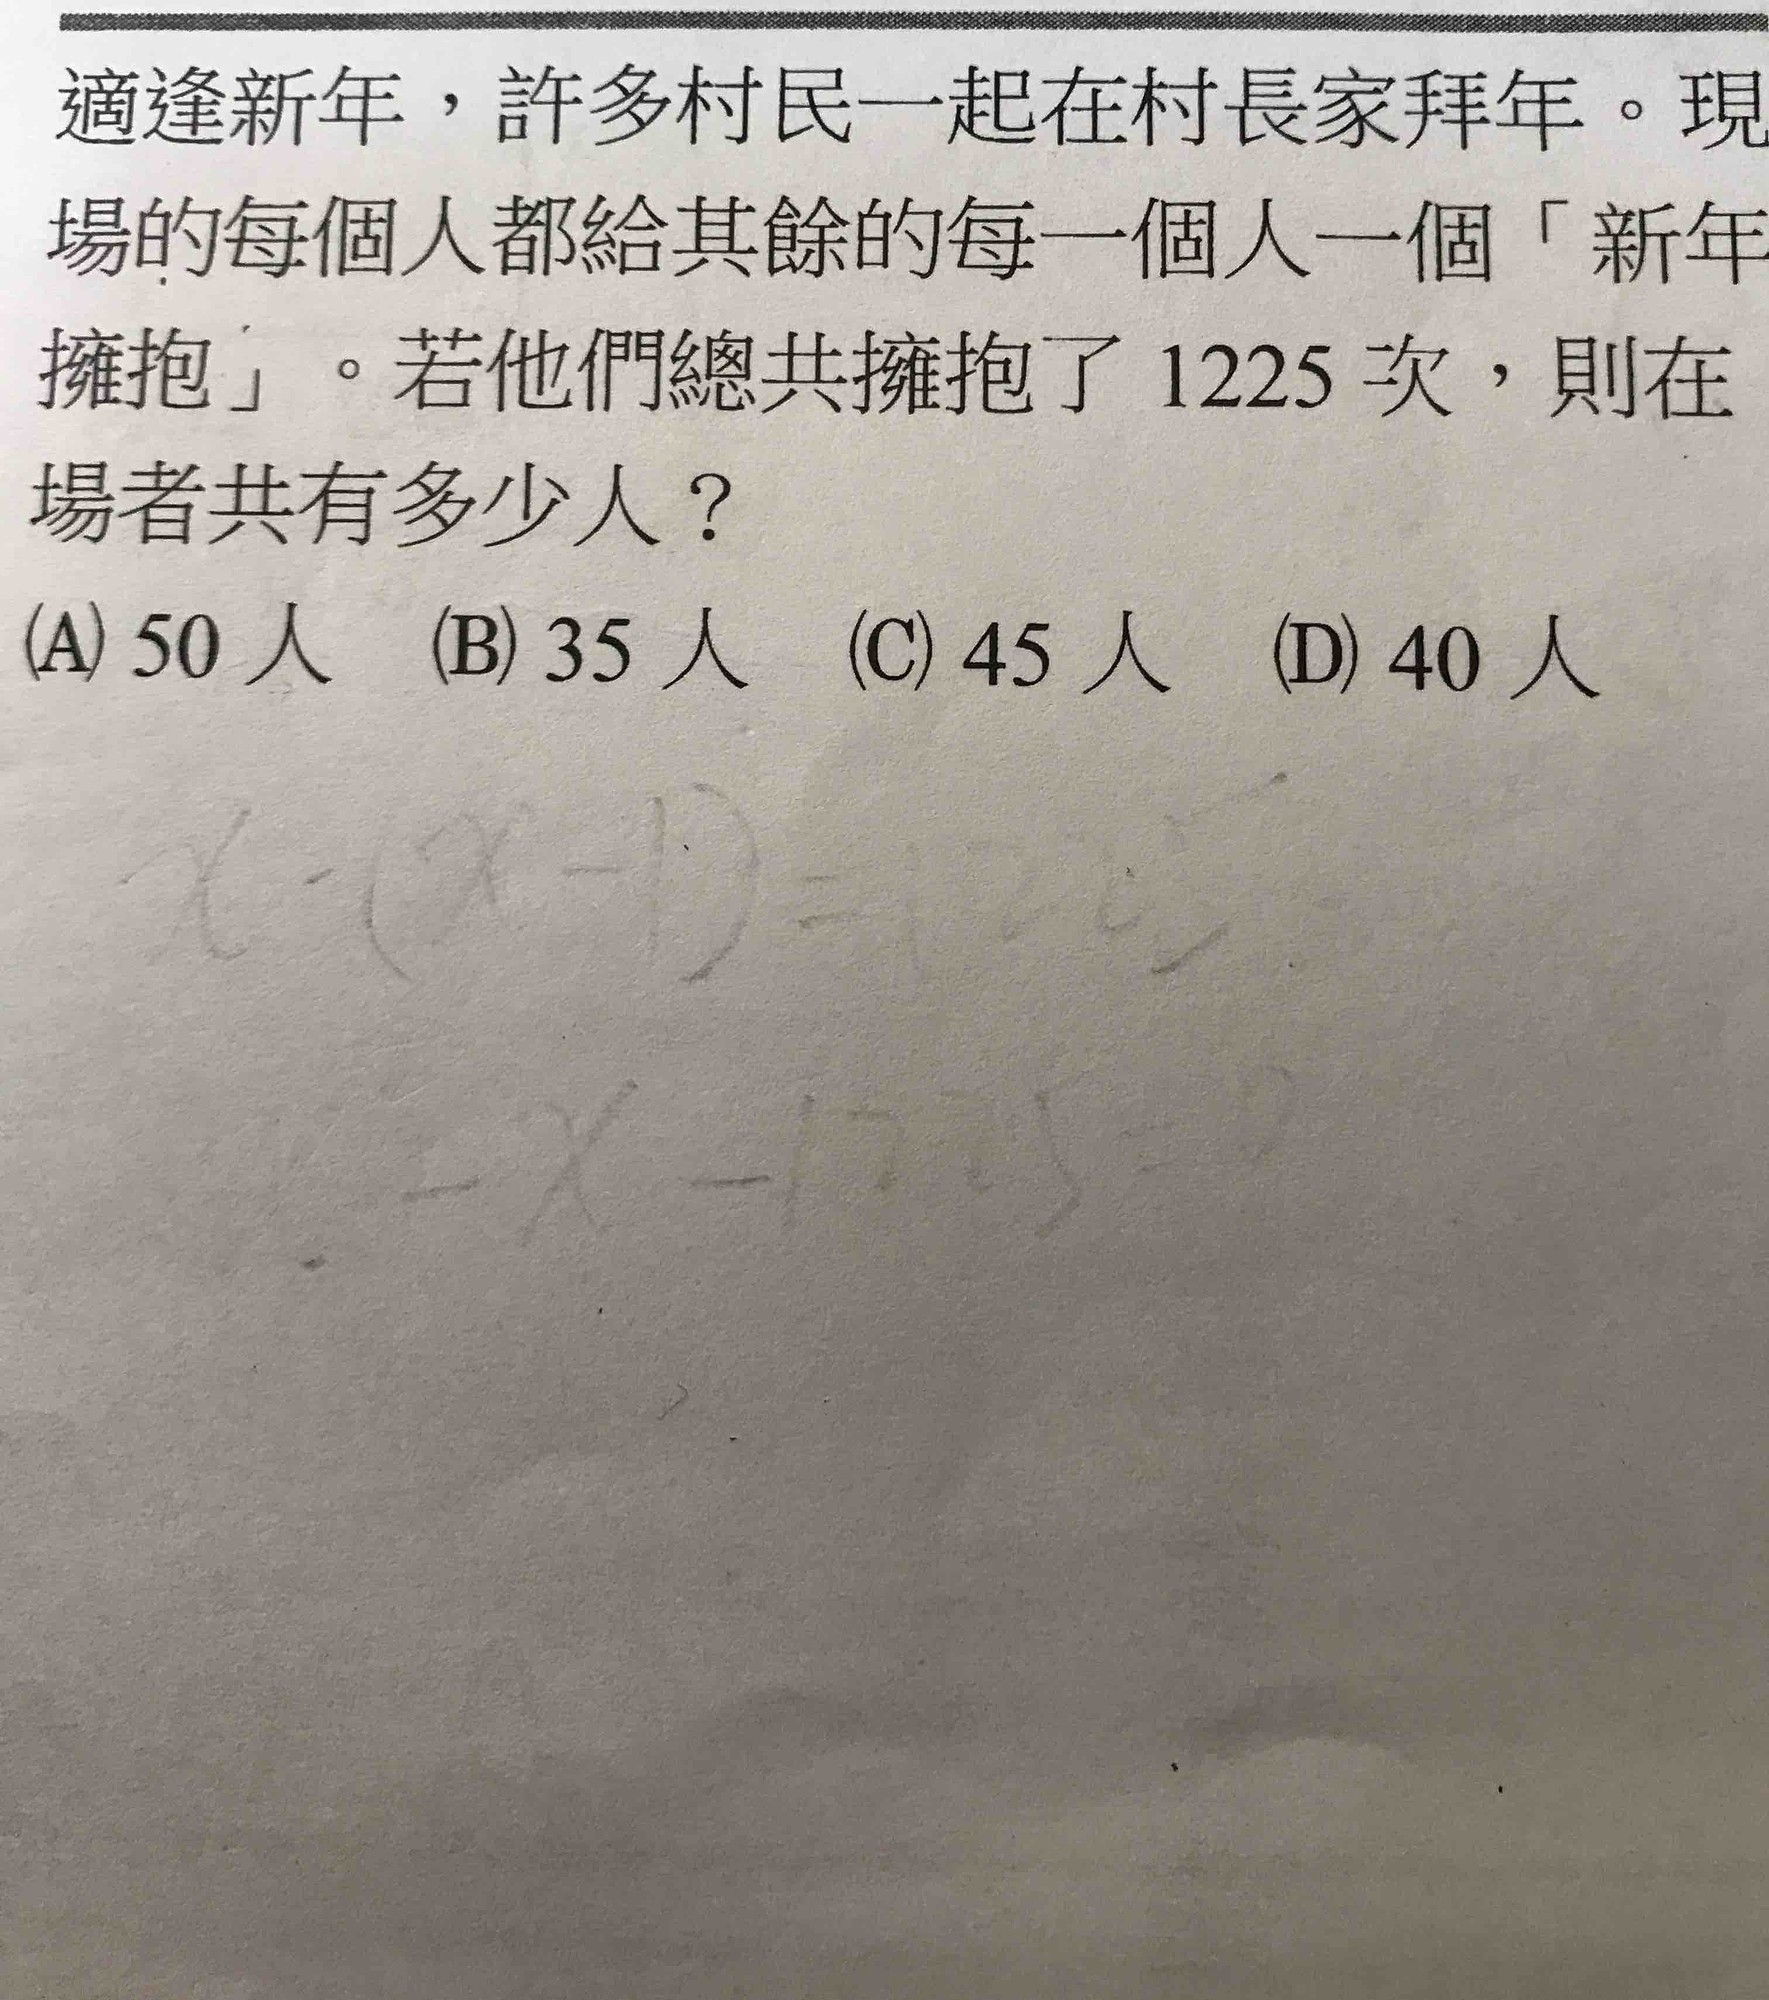 適逢新年，許多村民一起在村長家拜年。現
場的每個人都給其餘的每一個人一個「新年
擁抱」。若他們總共擁抱了 1225 次，則在
場者共有多少人？
(A) 50 人 (B) 35 人 (C) 45 人 (D) 40 人
x·(x-1)=1225
-x-1225=0